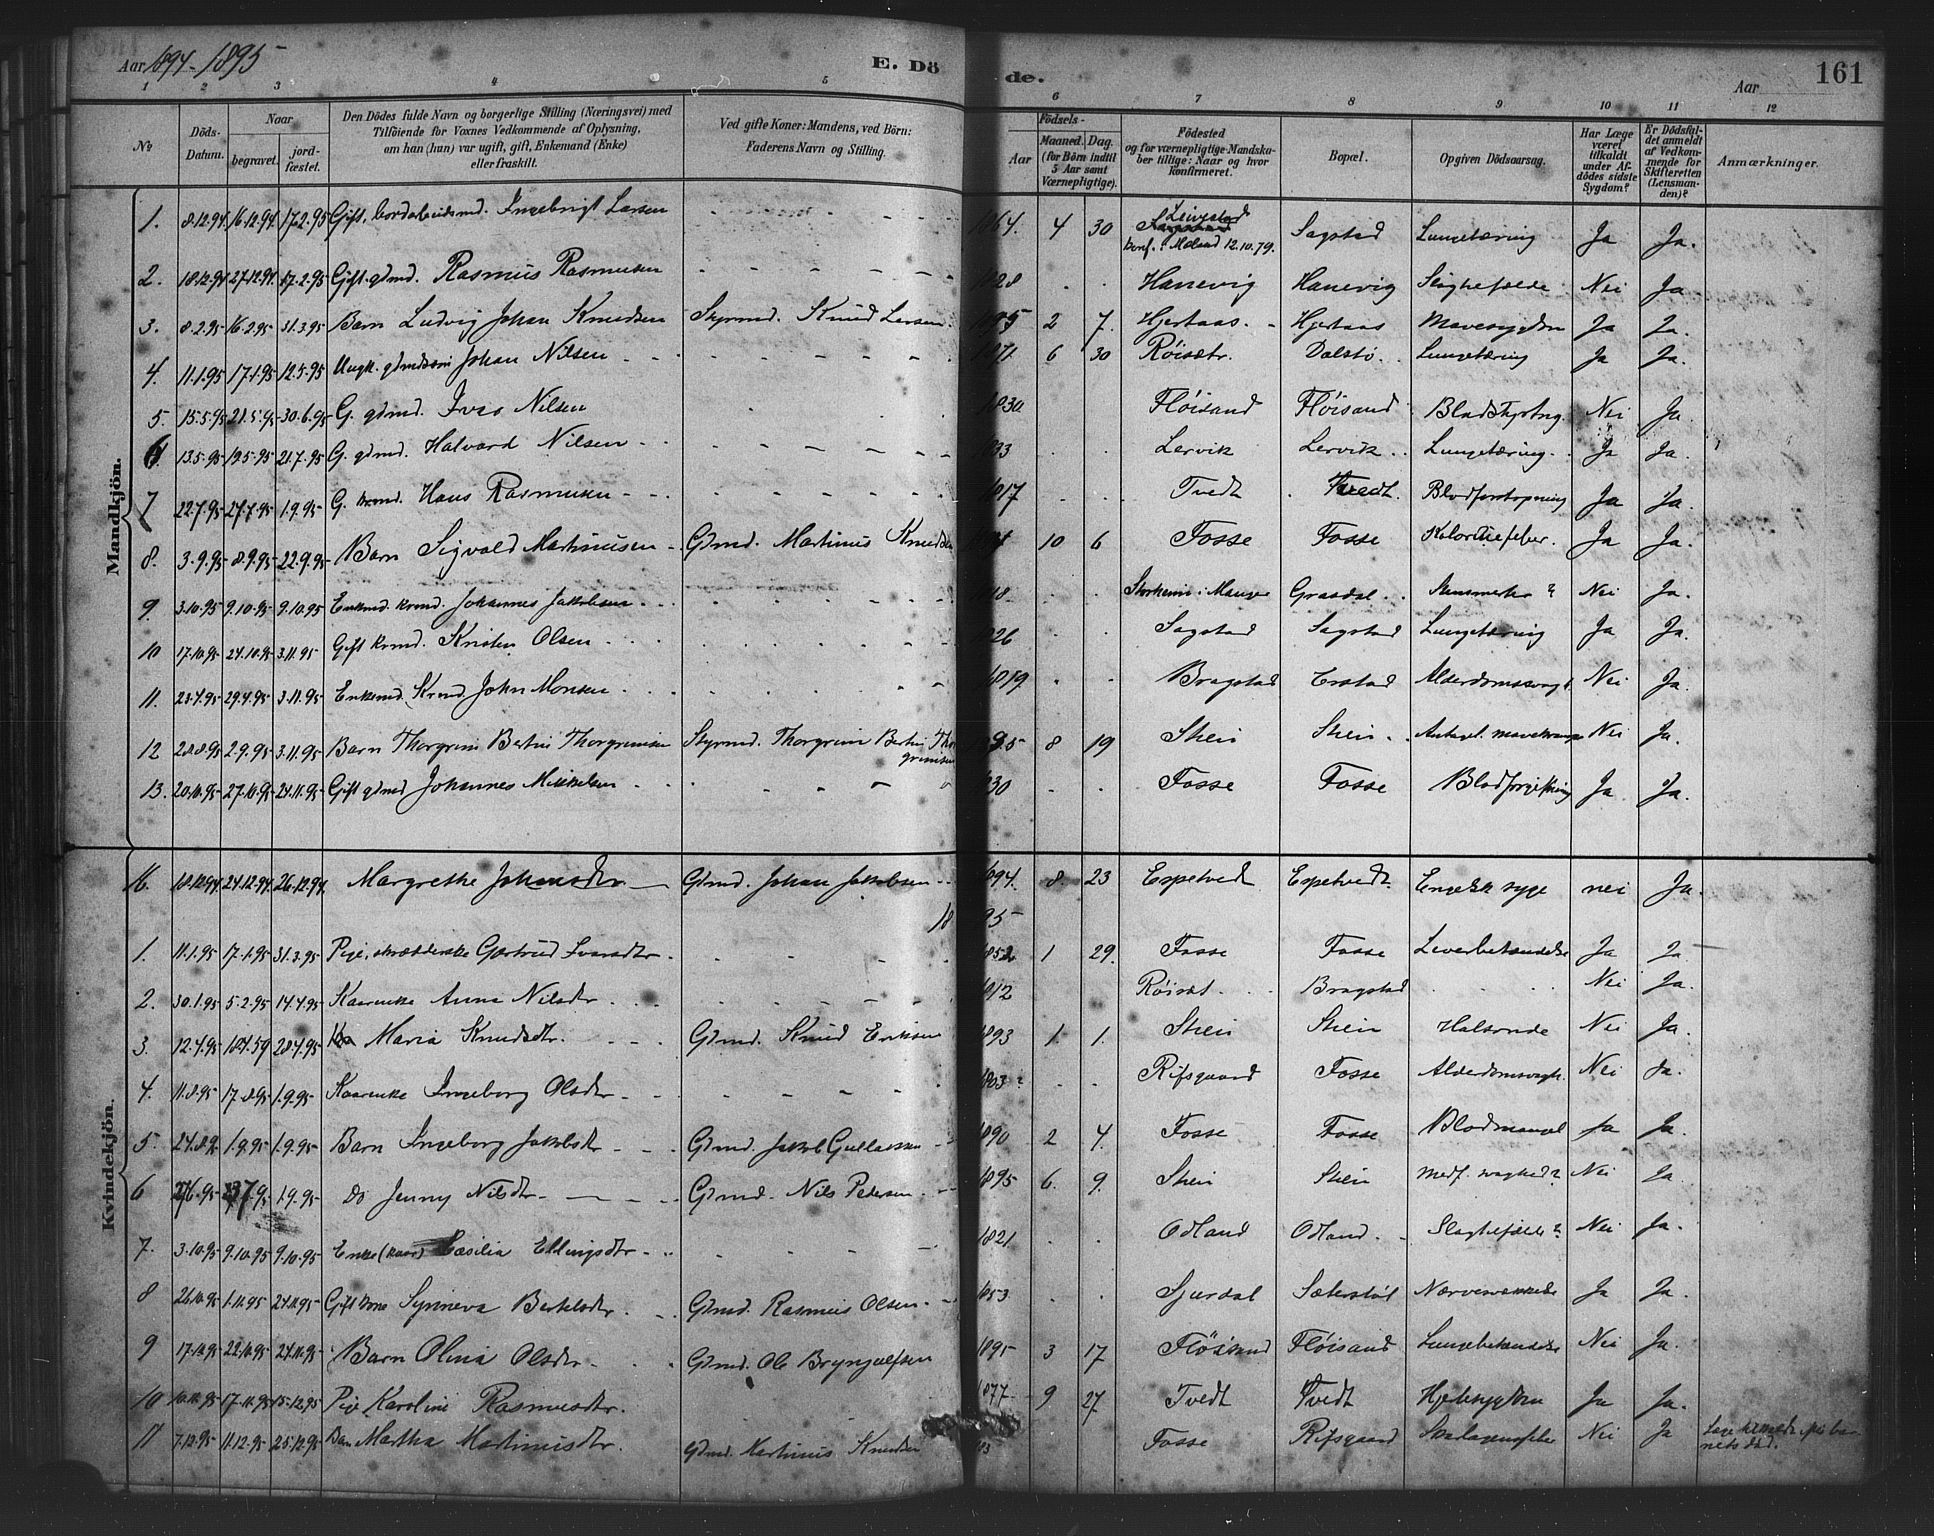 Aar 1894-1895
E. Dö
de.
Aar
161
1 2 3 4 5 6 7 8 9 10 11 12
No
Döds-Datum.
Naar
begravet.
jord-fæstet.
Den Dödes fulde Navn og borgerlige Stilling (Næringsvei) med
Tilföiende for Voxnes Vedkommende af Oplysning,
om han (hun) var ugift, gift, Enkemand (Enke)
eller fraskilt.
Ved gifte Koner: Mandens, ved Börn:
Faderens Navn og Stilling.
Födsels-
Aar
Maaned. Dag.
(for Börn indtil
5 Aar samt
Værnepligtige).
Födested
og for værnepligtige Mandska-
ber tillige: Naar og hvor
konfirmeret.
Bopæl.
Opgiven Dödsaarsag.
Har Læge
været
tilkaldt
under Af-
dödes sidste
Sygdom?
Er Dödsfal-
det anmeldt
af Vedkom-
mende for
Skifteretten
(Lensman-
den)?
Anmærkninger.
Mandkjön.
1. 8.12.94 16.12.94 17.2.95 Gift, Ingebrigt Larsen 1864. 4 30 Leivestad konf. i Meland 12.10.79. Sagstad Lungetæring Ja Ja.
2. 18.12.94 27.12.94 17.2.95 Gift gdmd. Rasmus Rasmusen 1828 Hanevig Hanevig Slagtilfælde Nei Ja
3. 8.2.95 16.2.95 31.3.95 Barn Ludvig Johan Knudsen Styrmd. Knud Larsen 1895 2 7. Hjertaas. Hjertaas Mavesygdom Ja Ja.
4. 11.1.95 17.1.95 12.5.95 Ungk. gdmdssøn Johan Nilsen 1871 6 30 Røisæt. Dalstø. Lungetæring Ja Ja.
5. 15.5.95 21.5.95 30.6.95 G. gdmd. Ivar Nilsen 1830 Fløisand Fløisand Blodstyrtng. Nei Ja.
6 13.5.95 19.5.95 21.7.95 G. gdmd. Halvard Nilsen 1833 Lervik Lervik Lungetæring. Ja Ja.
7 22.7.95 27.7.95 1.9.95 G. krmd. Hans Rasmusen 1817 Tvedt Tvedt. Blodforstopning Ja Ja.
8. 3.9.95 8.9.95 22.9.95 Barn Sigvald Martinusen Gdmd. Martinus Knudsen 10 6 Fosse Fosse Ja Ja.
9 3.10.95 9.10.95 9.10.95 Enkmd. krmd. Johannes Jakobsen Storheim i Manger Graadal Nei Ja.
10 17.10.95 24.10.95 3.11.95 Gift krmd. Kristen Olsen 1826 Sagstad Sagstad Lungetæring Ja Ja.
11. 23.4.95 29.4.95 3.11.95 Enkemd. Krmd. John Monsen 1819 Bragstad Erstad Alderdomssvagh. Nei Ja.
12 28.8.95 2.9.95 3.11.95 Barn Thorgrim Bertin Thorgrimsen Styrmd. Thorgrim Bertin Thorgrimsen 1895 8 19 Stein Stein. Antagel. mavekrampe Nei Ja.
13. 20.10.95 27.10.95 24.11.95 Gift gdmd Johannes Mikkelsen 1830 Fosse Fosse Blodforgiftning Ja Ja.
Kvindekjön.
16. 18.12.94 24.12.94 26.12.94 Margrethe Johansdtr Gdmd. Johan Jakobsen 1894. 8. 23 Espetvedt Espetvedt. Engelsk syge nei Ja.
1895
1. 11.1.95 17.1.95 31.3.95 Pige, skrædderske Gjertrud Ivarsdtr. 1852 1 29. Fosse Fosse Leverbetændelse Ja Ja
2. 30.1.95 5.2.95 14.4.95 Kaarenke Anna Nilsdtr 1812 Røisæt. Bragstad Nei Ja.
3. 12.4.95 18.4.59 28.4.95 Maria Knudsdtr. Gdmd. Knud Eriksen 1893 1. 1. Stein Stein Halsonde Nei Ja.
4. 11.8.95 17.8.95 1.9.95 Kaarenke Ingeborg Olsdtr 1803? Rifsgaard Fosse Alderdomssvagh. Nei Ja.
5. 24.8.9 1.9.95 1.9.95 Barn Ingeborg Jakobsdtr Gdmd. Jakob Gullaksen 1890 2 4. Fosse Fosse Blodmangel Ja Ja.
6 27.6.95 3.7.95 1.9.95 Do Jenny Nilsdtr. Gdmd. Nils Pedersen 1895 6. 9. Stein Stein Medf. svaghed? Nei Ja.
7. 3.10.95 9.10.95 9.10.95 Enke (kaar) Cæsilia Ellingsdtr 1821 Odland Odland. Slagtilfælde? Nei Ja.
8 26.10.95 1.11.95 24.11.95 Gift kone Synneva Bertelsdtr Gdmd. Rasmus Olsen. 1853 Sjurdal Sæterstøl Nervesvækkelse Ja Ja.
9 17.10.95 22.10.95 24.11.95 Barn Olina Olsdtr Gdmd. Ole Brynjulfsen 1895 3 17 Fløisand Fløisand Lungebetændelse Nei Ja.
10 10.11.95 17.11.95 15.12.95 Pige Karoline Rasmusdtr. 1877 9 27 Tvedt Tvedt Hjertesygdom Ja Ja.
11 7.12.95 11.12.95 25.12.95 Barn Martha Martinusdtr. Gdmd. Martinus Knudsen Fosse Rifsgaard Skarlagensfeber Nei Ja